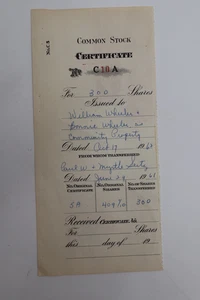 COMMON STOCK
CERTIFICATE
No. C 10 A
For 300 Shares
Issued to
William Wheeler &
Bonnie Wheeler as
Community Property
Dated 19 63
FROM WHOM TRANSFERRED
Paul W. & Myrtle
Dated June 29 1963
NO. ORIGINAL CERTIFICATE
NO. ORIGINAL SHARES
NO. OF SHARES TRANSFERRED
5A
300
Received CERTIFICATE No.
For SHARES
this day of 19